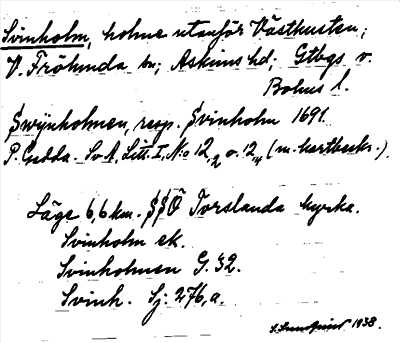 Svinholm, holme utanför Västkusten;
V. Frölunda sn; Askims hd; Gtbgs o.
Bohus l.
Swijnholmen, resp. Svinholm 1691.
P. Gedda. Sv.A. Litt. I, No 12,2 o. 12,4 (m. kartbeskr.).
Läge 6,6 km. SSÖ Torslanda kyrka.
Svinholm ek.
Svinholmen G. 32.
Svinh. Sj. 276,a.
1938.